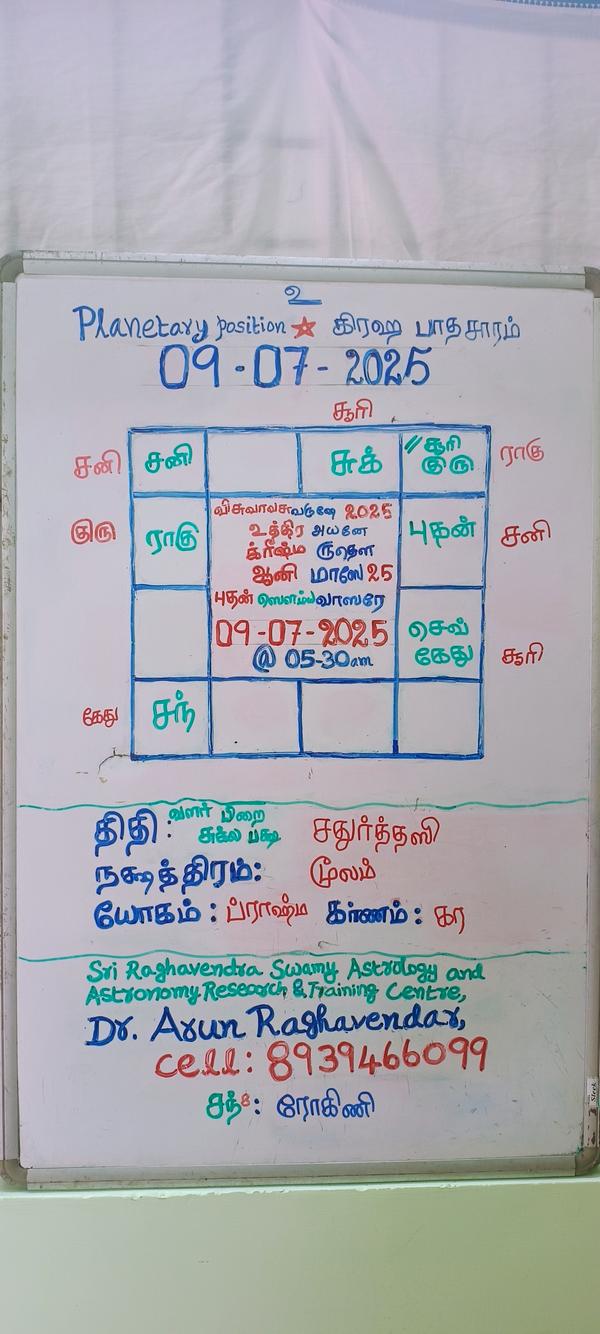 உ
Planetary position ☆ கிரஹ பாதசாரம்
09-07-2025
சூரி
சனி சனி சுக் // சூரி குரு ராகு
குரு ராகு புதன் சனி
விசுவாவசுவருஷே 2025
உத்திர அயனே
க்ரீஷ்ம ருதௌ
ஆனி மாஸே 25
புதன் ஸௌம்யவாஸரே
09-07-2025
@ 05-30am
செவ் கேது சூரி
கேது சந்
திதி: வளர் பிறை சுக்ல பக்ஷ சதுர்த்தஸி
நக்ஷத்திரம்: மூலம்
யோகம்: ப்ராஷ்ம கர்ணம்: கர
Sri Raghavendra Swamy Astrology and
Astronomy Research & Training Centre,
Dr. Arun Raghavendar,
Cell: 8939466099
சந்8: ரோகிணி